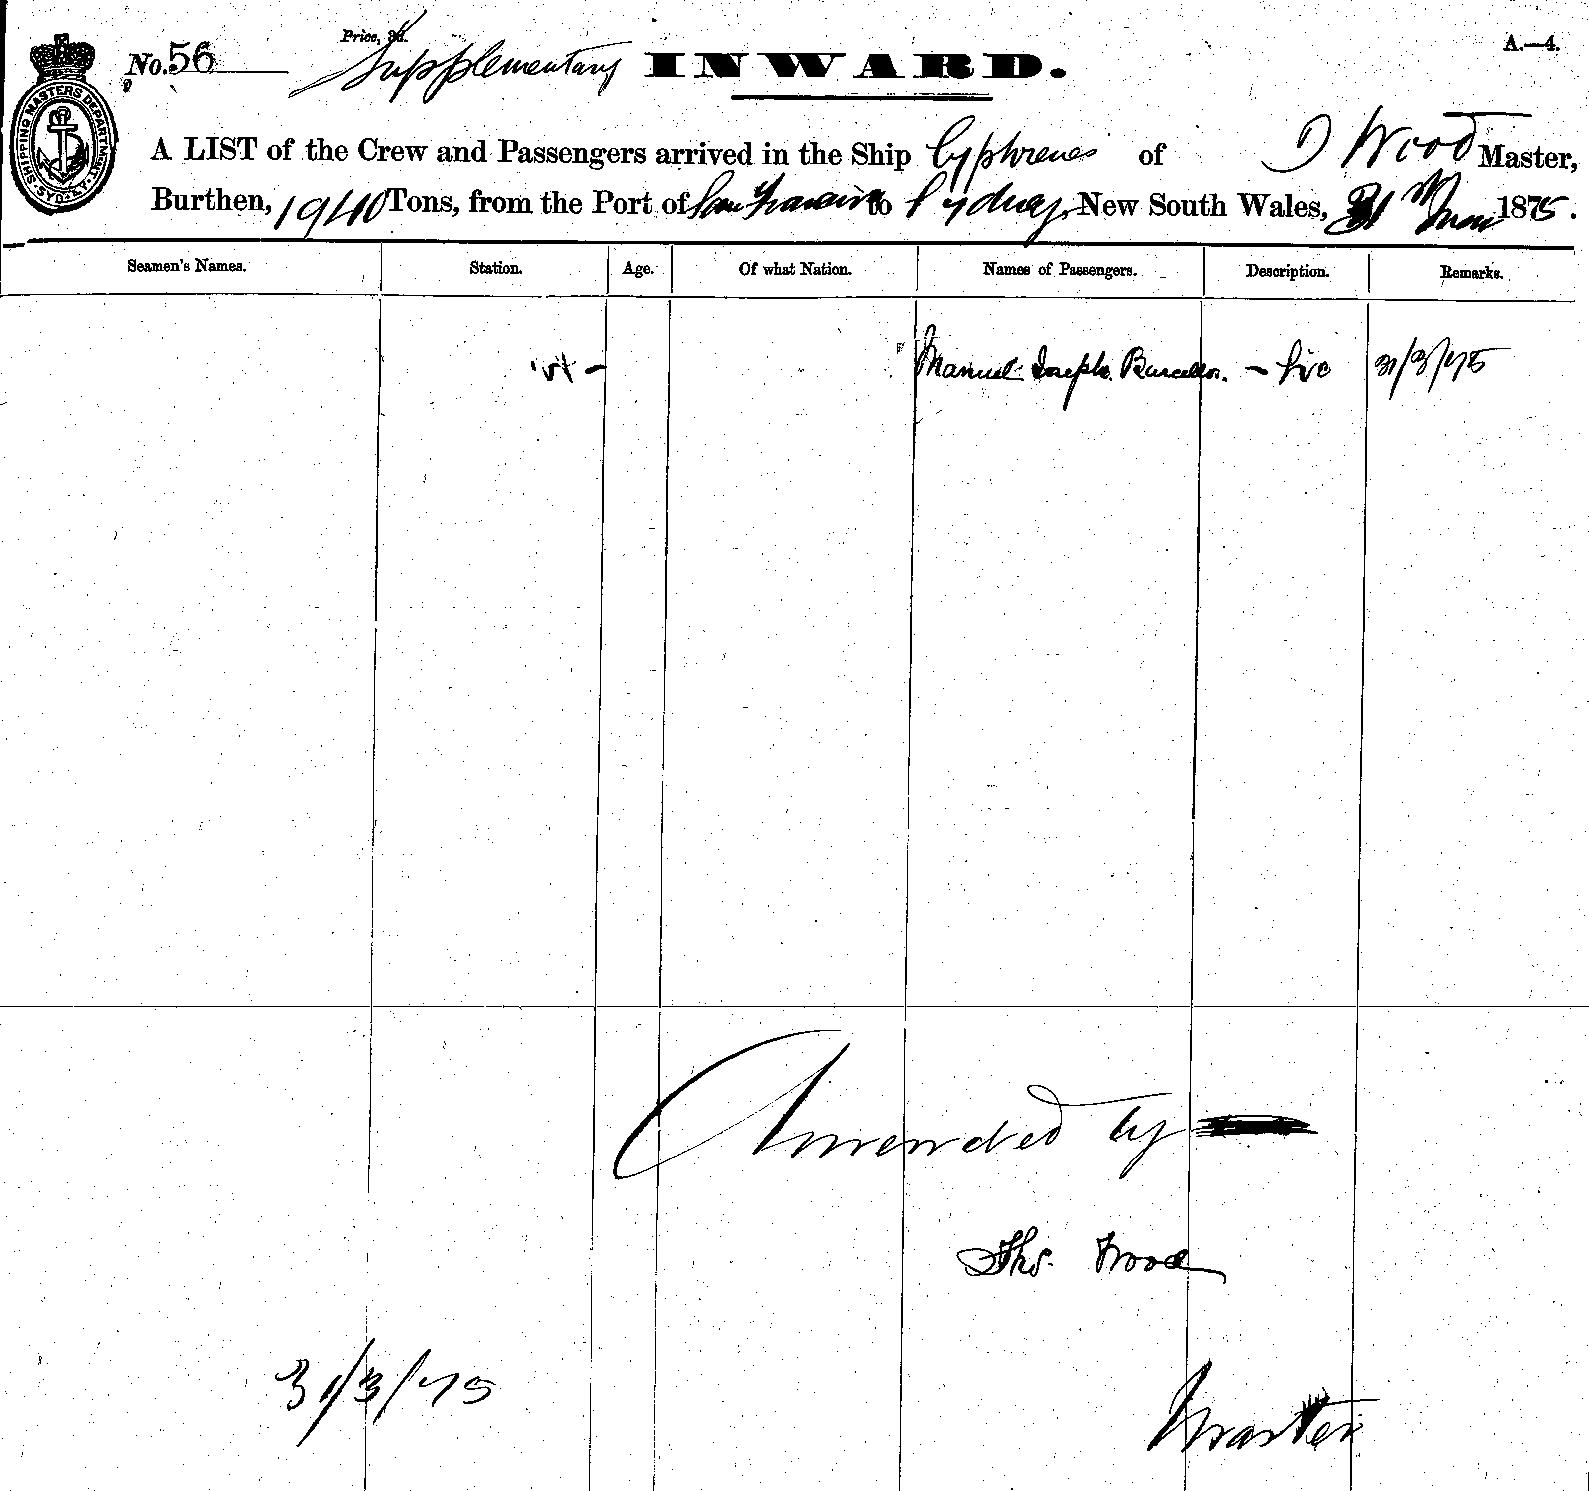 Price, 3d.
No. 56 Supplementary INWARD. A.—4.
SHIPPING MASTERS DEPARTMENT
A LIST of the Crew and Passengers arrived in the Ship Cyphrenes of T Wood Master,
Burthen, 1940 Tons, from the Port of San Francisco to Sydney, New South Wales, 31 1875.
Seamen's Names. Station. Age. Of what Nation. Names of Passengers. Description. Remarks.
Manuel Joseph Barcellos. 31/3/75
Amended by
Thos. Wood
31/3/75
Master